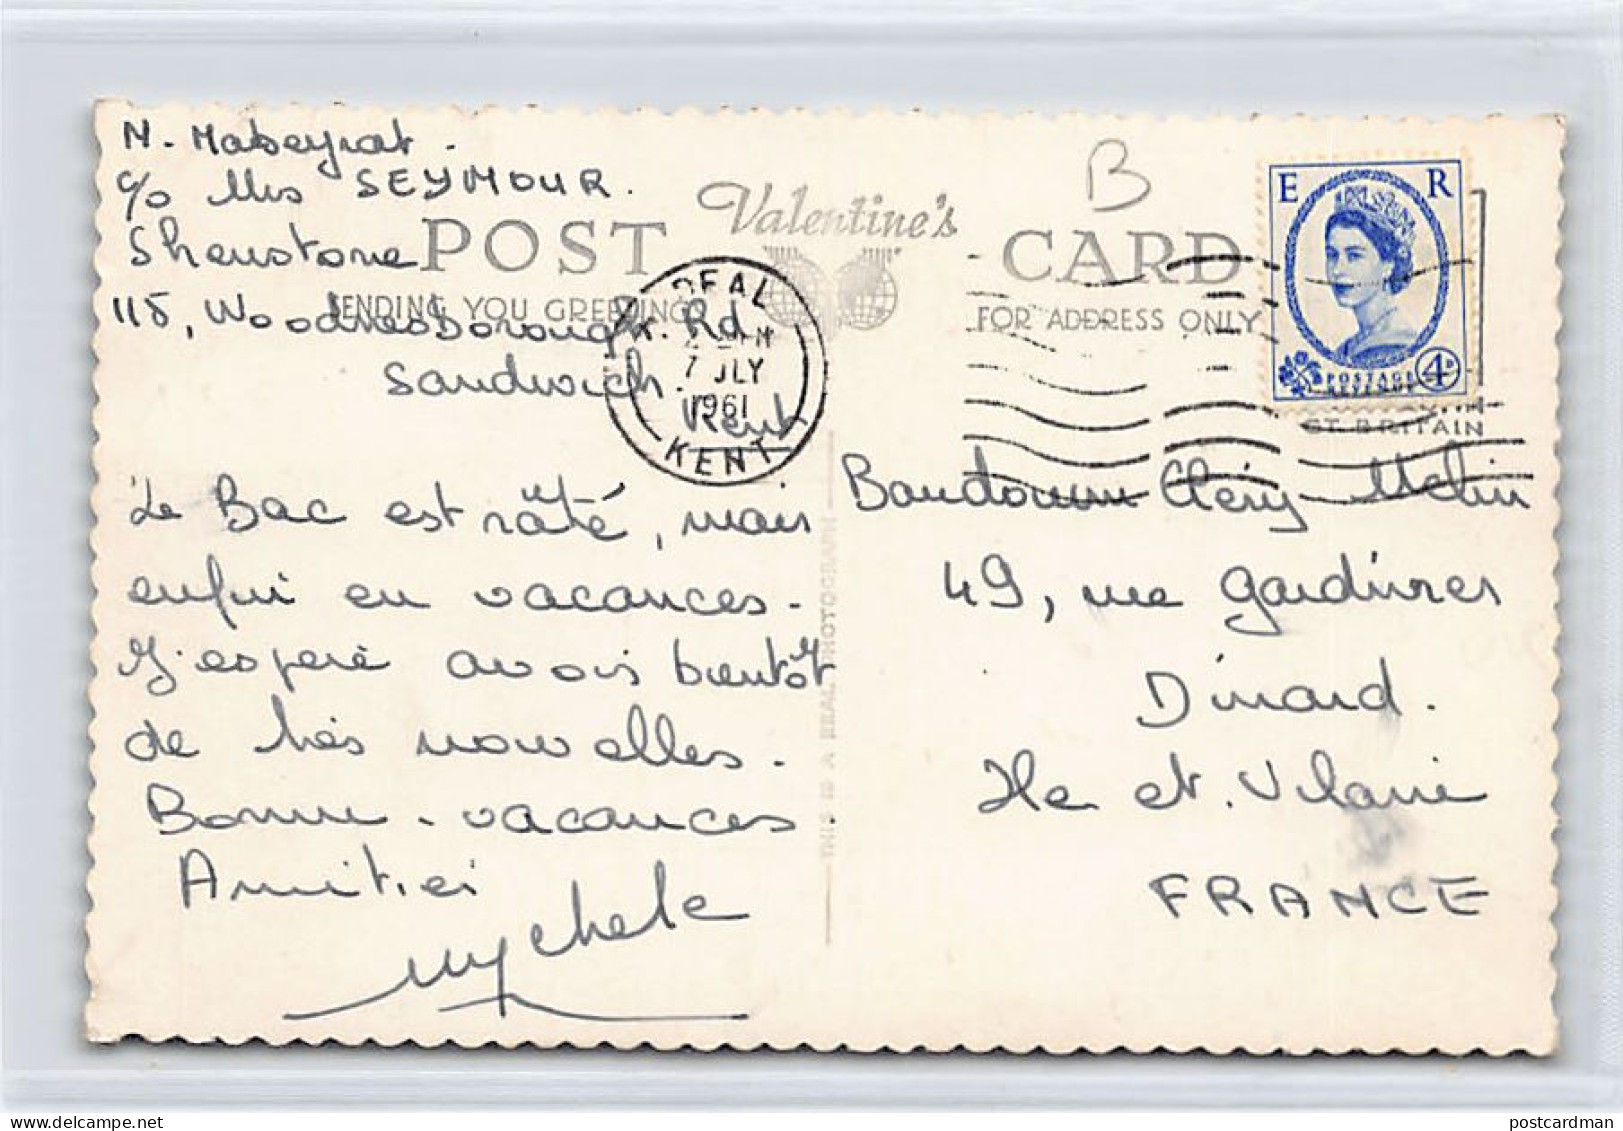 M. Mabeyrat.
c/o Mrs SEYMOUR.
Shenstone
118, Woodnesborough Rd
Sandwich.
Kent
POST CARD
Valentine's
SENDING YOU GREETINGS
FOR ADDRESS ONLY
DEAL
7 JLY
1961
KENT
B
E R
POSTAGE
REVENUE
4D
GT. BRITAIN
Le Bac est râté, mais
enfin en vacances.
J'espère avoir bientôt
de tes nouvelles.
Bonne vacances
Amitiés
Mychele
THIS IS A REAL PHOTOGRAPH
Baudouin Cléry-Melin
49, rue Gardiner
Dinard.
Ile et Vilaine
FRANCE
postcardman